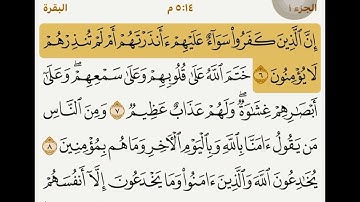 الجزء ١ ٥:١٤ م البقرة
إِنَّ ٱلَّذِينَ كَفَرُوا۟ سَوَآءٌ عَلَيْهِمْ ءَأَنذَرْتَهُمْ أَمْ لَمْ تُنذِرْهُمْ
لَا يُؤْمِنُونَ ٦ خَتَمَ ٱللَّهُ عَلَىٰ قُلُوبِهِمْ وَعَلَىٰ سَمْعِهِمْ ۖ وَعَلَىٰٓ
أَبْصَـٰرِهِمْ غِشَـٰوَةٌ ۖ وَلَهُمْ عَذَابٌ عَظِيمٌ ٧ وَمِنَ ٱلنَّاسِ
مَن يَقُولُ ءَامَنَّا بِٱللَّهِ وَبِٱلْيَوْمِ ٱلْـَٔاخِرِ وَمَا هُم بِمُؤْمِنِينَ ٨
يُخَـٰدِعُونَ ٱللَّهَ وَٱلَّذِينَ ءَامَنُوا۟ وَمَا يَخْدَعُونَ إِلَّآ أَنفُسَهُمْ